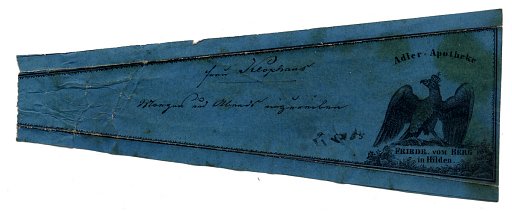 Adler-Apotheke
Frau Klophaus
Morgens und Abends einzureiben
FRIEDR. VOM BERG
in Hilden